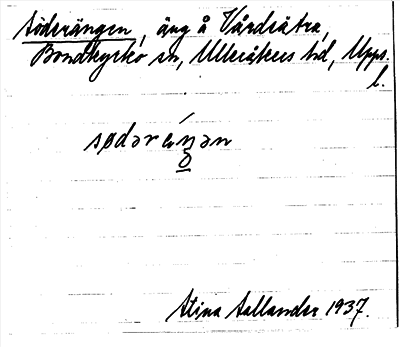 Söderängen, äng å Vårdsätra,
Bondkyrko sn, Ulleråkers hd, Upps.
l.
sødərɛŋən
Stina Sallander 1937.